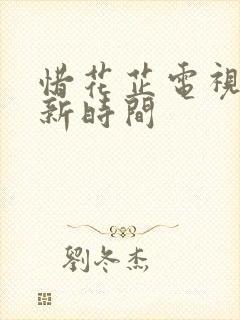 惜花芷電視
新時間
劉冬杰